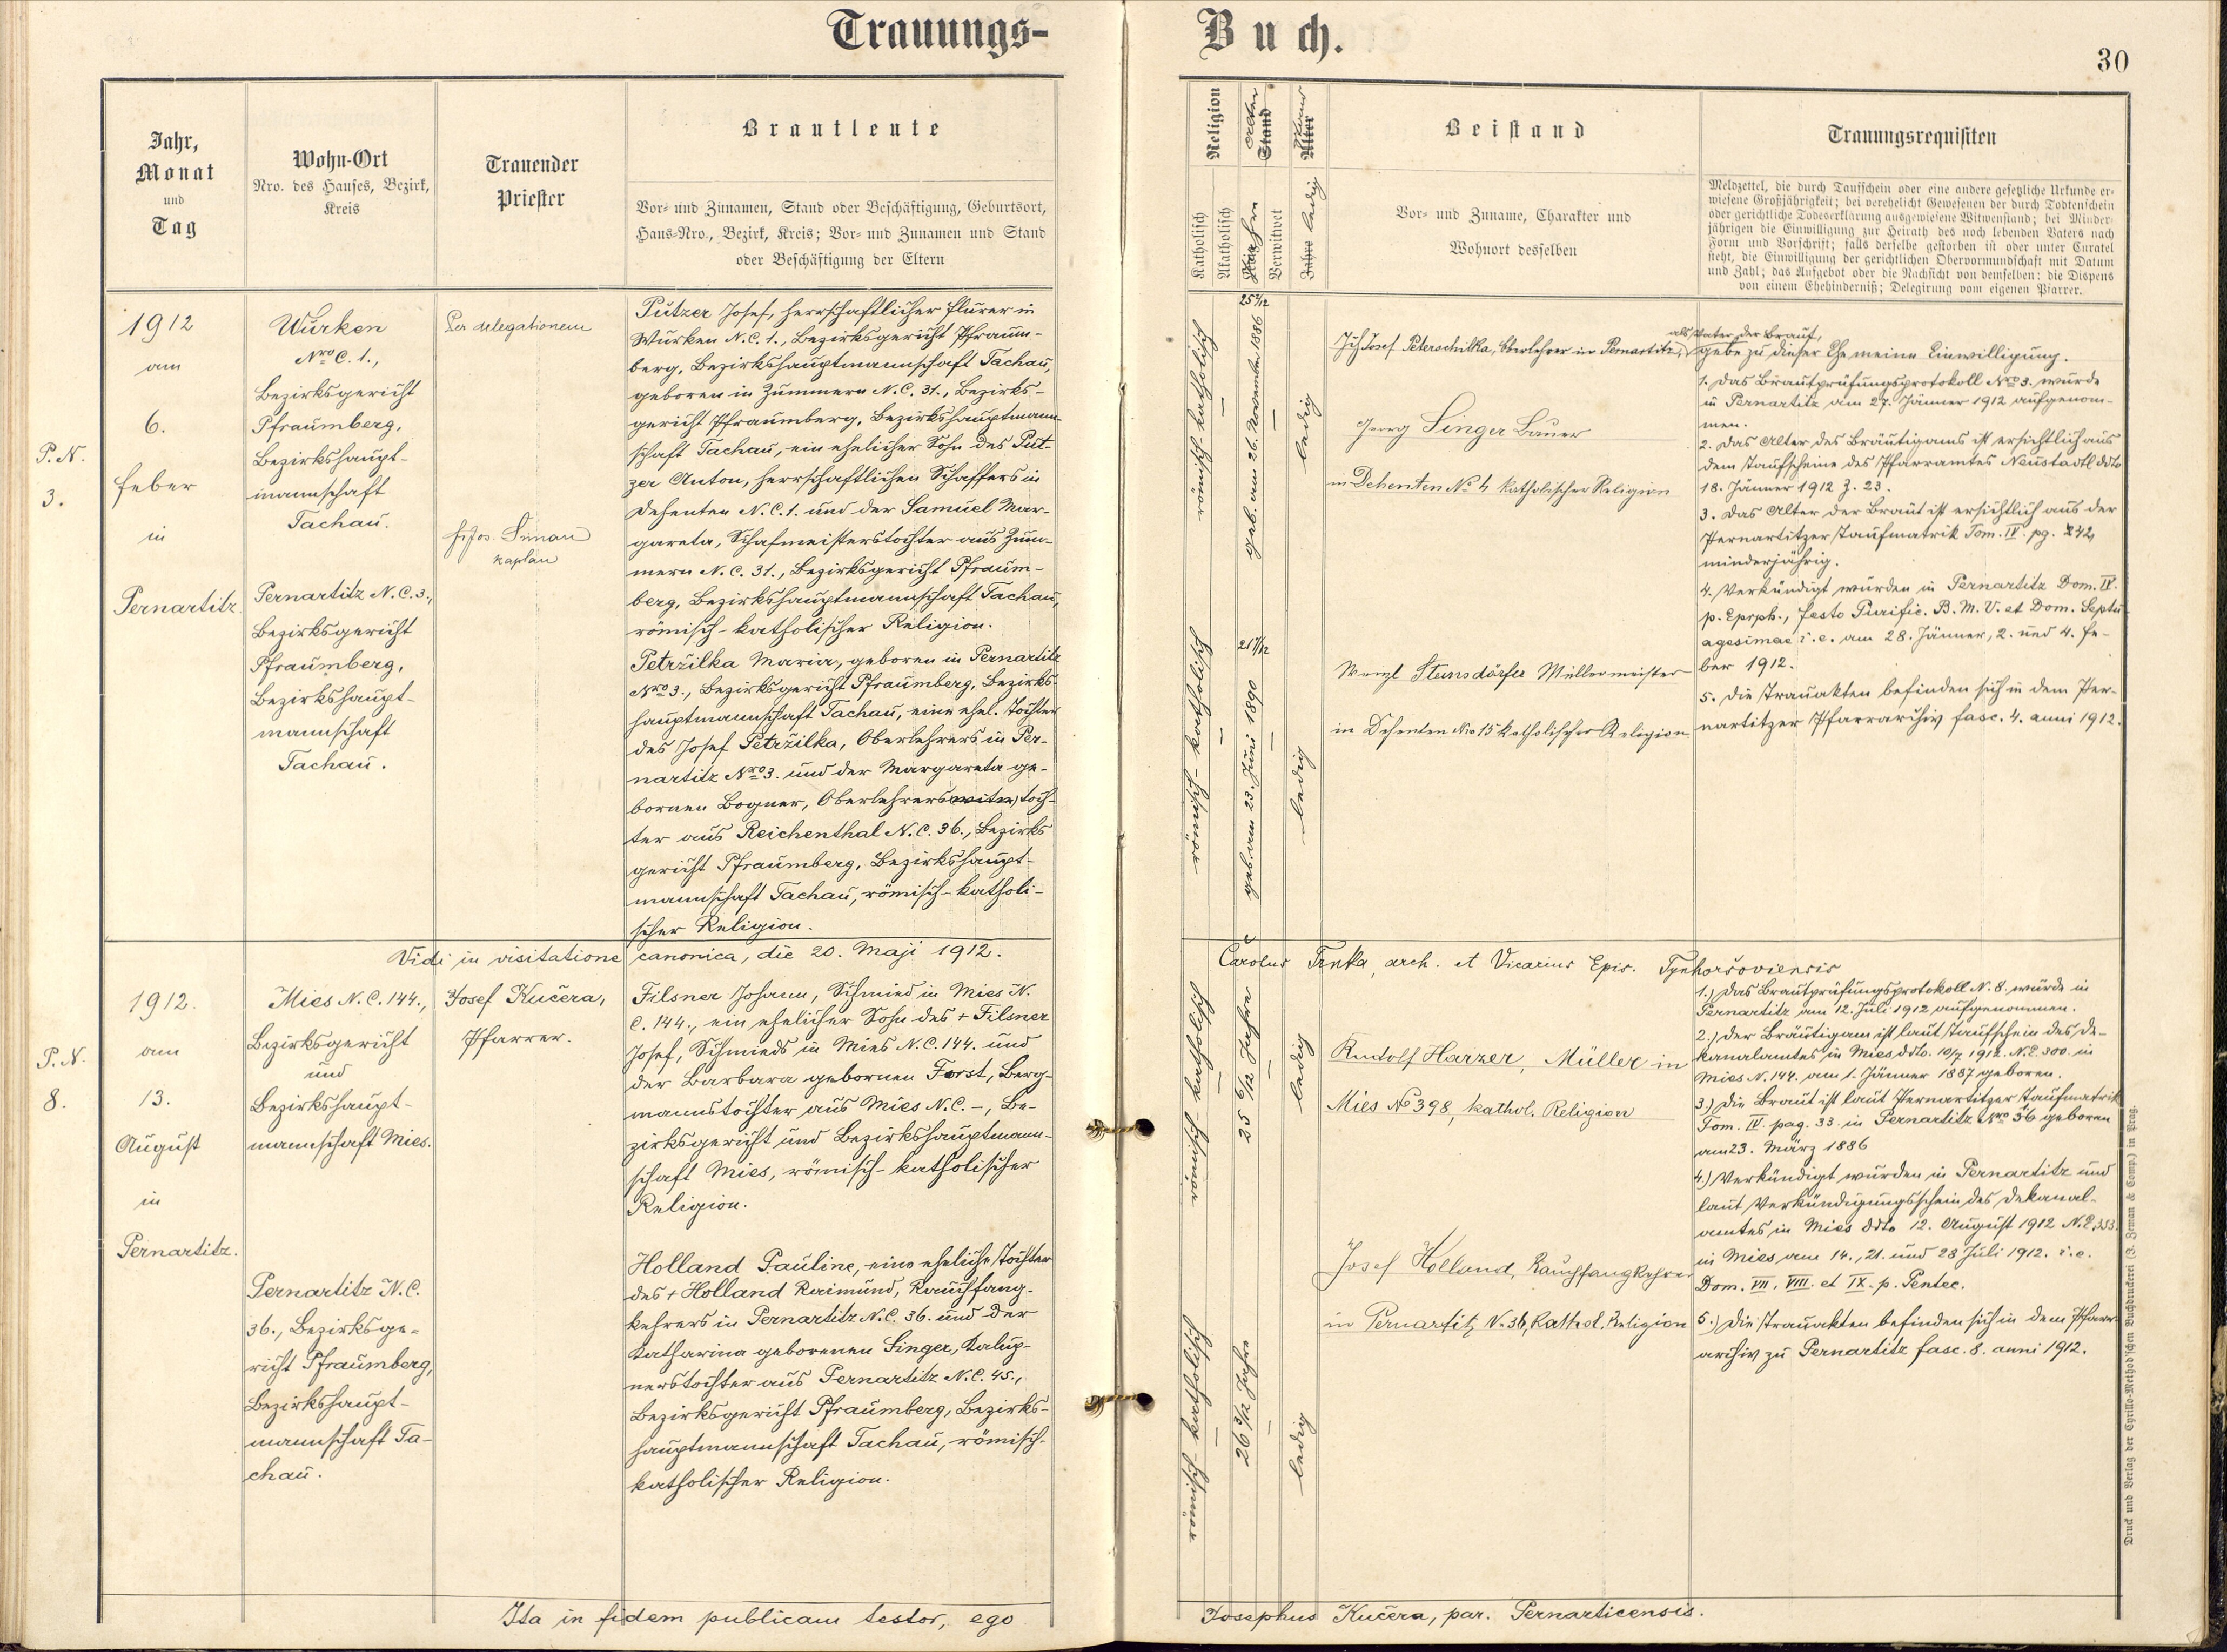 Trauungs-
Buch.
30
Jahr,
Monat
und
Tag
Wohn-Ort
Nro. des Hauses, Bezirk,
Kreis
Trauender
Priester
Brautleute
Vor- und Zunamen, Stand oder Beschäftigung, Geburtsort,
Haus-Nro., Bezirk, Kreis; Vor- und Zunamen und Stand
oder Beschäftigung der Eltern
Religion
Katholisch
Akatholisch
Alter
Stand
Verwitwet
Stand
Alter
Jahre ledig
Beistand
Vor- und Zuname, Charakter und
Wohnort desselben
Trauungsrequisiten
Meldzettel, die durch Taufschein oder eine andere gesetzliche Urkunde er-
wiesene Großjährigkeit; bei verehelicht Gewesenen der durch Todtenschein
oder gerichtliche Todeserklärung ausgewiesene Witwenstand; bei Minder-
jährigen die Einwilligung zur Heirath des noch lebenden Vaters nach
Form und Vorschrift; falls derselbe gestorben ist oder unter Curatel
steht, die Einwilligung der gerichtlichen Obervormundschaft mit Datum
und Zahl; das Aufgebot oder die Nachsicht von demselben; die Dispens
von einem Ehehinderniß; Delegirung vom eigenen Pfarrer.
P. N.
3.
1912
am
6.
feber
in
Pernartitz.
Wurken
Nro C. 1.,
Bezirksgericht
Pfraumberg,
Bezirkshaupt-
mannschaft
Tachau.
Pernartitz N.C. 3.,
Bezirksgericht
Pfraumberg,
Bezirkshaupt-
mannschaft
Tachau.
Per delegationem
Jos. Simau
Kaplan
Putzer Josef, herrschaftlicher Flurer in
Wurken N.C. 1., Bezirksgericht Pfraum-
berg, Bezirkshauptmannschaft Tachau,
geboren in Zummern N.C. 31., Bezirks-
gericht Pfraumberg, Bezirkshauptmann-
schaft Tachau, ein ehelicher Sohn des Put-
zer Anton, herrschaftlichen Schaffers in
Dehenten N.C. 1. und der Samuel Mar-
gareta, Schafmeisterstochter aus Zum-
mern N.C. 31., Bezirksgericht Pfraum-
berg, Bezirkshauptmannschaft Tachau,
römisch-katholischer Religion.
Petržilka Maria, geboren in Pernartitz
Nro 3., Bezirksgericht Pfraumberg, Bezirks-
hauptmannschaft Tachau, eine ehel. Tochter
des Josef Petržilka, Oberlehrers in Per-
nartitz Nro 3. und der Margareta ge-
bornen Bogner, Oberlehrers toch-
ter aus Reichenthal N.C. 36., Bezirks
gericht Pfraumberg, Bezirkshaupt-
mannschaft Tachau, römisch-katholi-
scher Religion.
römisch-katholisch
25 2/12
geb. am 26. November 1886
ledig
römisch-katholisch
21 7/12
geb. am 23. Juni 1890
ledig
Ich Josef Peterschilka, Oberlehrer in Pernartitz,
als Vater der Braut,
gebe zu dieser Ehe meine Einwilligung.
Georg Singer Bauer
in Dehenten No 4 katholischer Religion
Wenzl Steinsdörfer Müllermeister
in Dehenten Nro 15 katholischer Religion
1. Das Brautprüfungsprotokoll Nro 3. wurde
in Pernartitz am 27. Jänner 1912 aufgenom-
men.
2. Das Alter des Bräutigams ist ersichtlich aus
dem Taufscheine des Pfarramtes Neustadtl ddto
18. Jänner 1912 Z. 23.
3. Das Alter der Braut ist ersichtlich aus der
Pernartitzer Taufmatrik Tom. IV. pg. 242,
minderjährig.
4. Verkündigt wurden in Pernartitz Dom. IV.
p. Epiph., festo Purific. B. M. V. et Dom. Septu-
agesimae i. e. am 28. Jänner, 2. und 4. Fe-
ber 1912.
5. Die Trauakten befinden sich in dem Per-
nartitzer Pfarrarchiv fasc. 4. anni 1912.
Vidi in visitatione canonica, die 20. Maji 1912.
Carolus Trnka, arch. et Vicarius Epis. Tynhoršoviensis
P. N.
8.
1912.
am
13.
August
in
Pernartitz.
Mies N.C. 144.,
Bezirksgericht
und
Bezirkshaupt-
mannschaft Mies.
Pernartitz N.C.
36., Bezirksge-
richt Pfraumberg,
Bezirkshaupt-
mannschaft Ta-
chau.
Josef Kučera,
Pfarrer.
Filsner Johann, Schmied in Mies N.
C. 144., ein ehelicher Sohn des + Filsner
Josef, Schmieds in Mies N.C. 144. und
der Barbara gebornen Forst, Berg-
mannstochter aus Mies N.C. -, Be-
zirksgericht und Bezirkshauptmann-
schaft Mies, römisch-katholischer
Religion.
Holland Pauline, eine eheliche Tochter
des + Holland Raimund, Rauchfang-
kehrers in Pernartitz N.C. 36. und der
Katharina geborenen Singer, Kalup-
nerstochter aus Pernartitz N.C. 45.,
Bezirksgericht Pfraumberg, Bezirks-
hauptmannschaft Tachau, römisch-
katholischer Religion.
römisch-katholisch
25 6/12 Jahre
ledig
römisch-katholisch
26 3/12 Jahre
ledig
Rudolf Harzer, Müller in
Mies No 398, kathol. Religion
Josef Holland, Rauchfangkehrer
in Pernartitz N. 36, kathol. Religion
1.) Das Brautprüfungsprotokoll N. 8. wurde in
Pernartitz am 12. Juli 1912 aufgenommen.
2.) Der Bräutigam ist laut Taufschein des De-
kanalamtes in Mies ddto. 10/7 1912. N.E. 300. in
Mies N. 144. am 1. Jänner 1887 geboren.
3.) Die Braut ist laut Pernartitzer Taufmatrik
Tom. IV. pag. 33. in Pernartitz Nro 36 geboren
am 23. März 1886
4.) Verkündigt wurden in Pernartitz und
laut Verkündigungsschein des Dekanal-
amtes in Mies ddto 12. August 1912 N.E. 353.
in Mies am 14., 21. und 28 Juli 1912. i. e.
Dom. VII. VIII. et IX. p. Pentec.
5.) Die Trauakten befinden sich in dem Pfarr-
archiv zu Pernartitz fasc. 8. anni 1912.
Ita in fidem publicam testor, ego
Josephus Kučera, par. Pernarticensis.
Druck und Verlag der Cyrillo-Method'schen Buchdruckerei (J. Zeman & Comp.) in Prag.